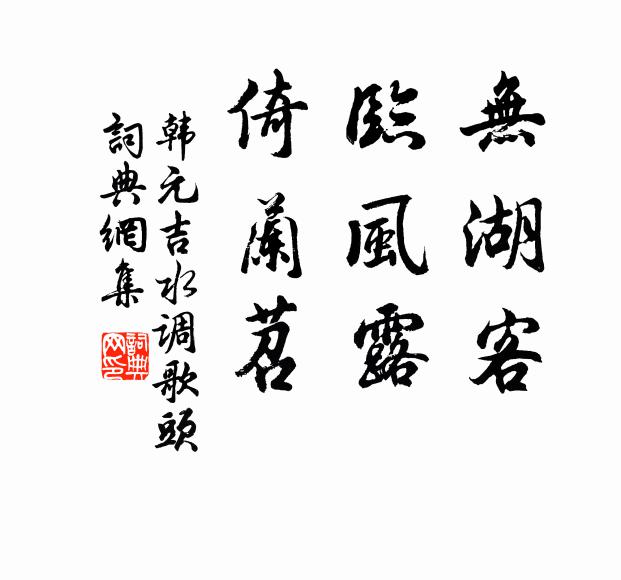 無湖客
臨風露
倚蘭苕
韩元吉水调歌頭
詞典網集
詞典
网印